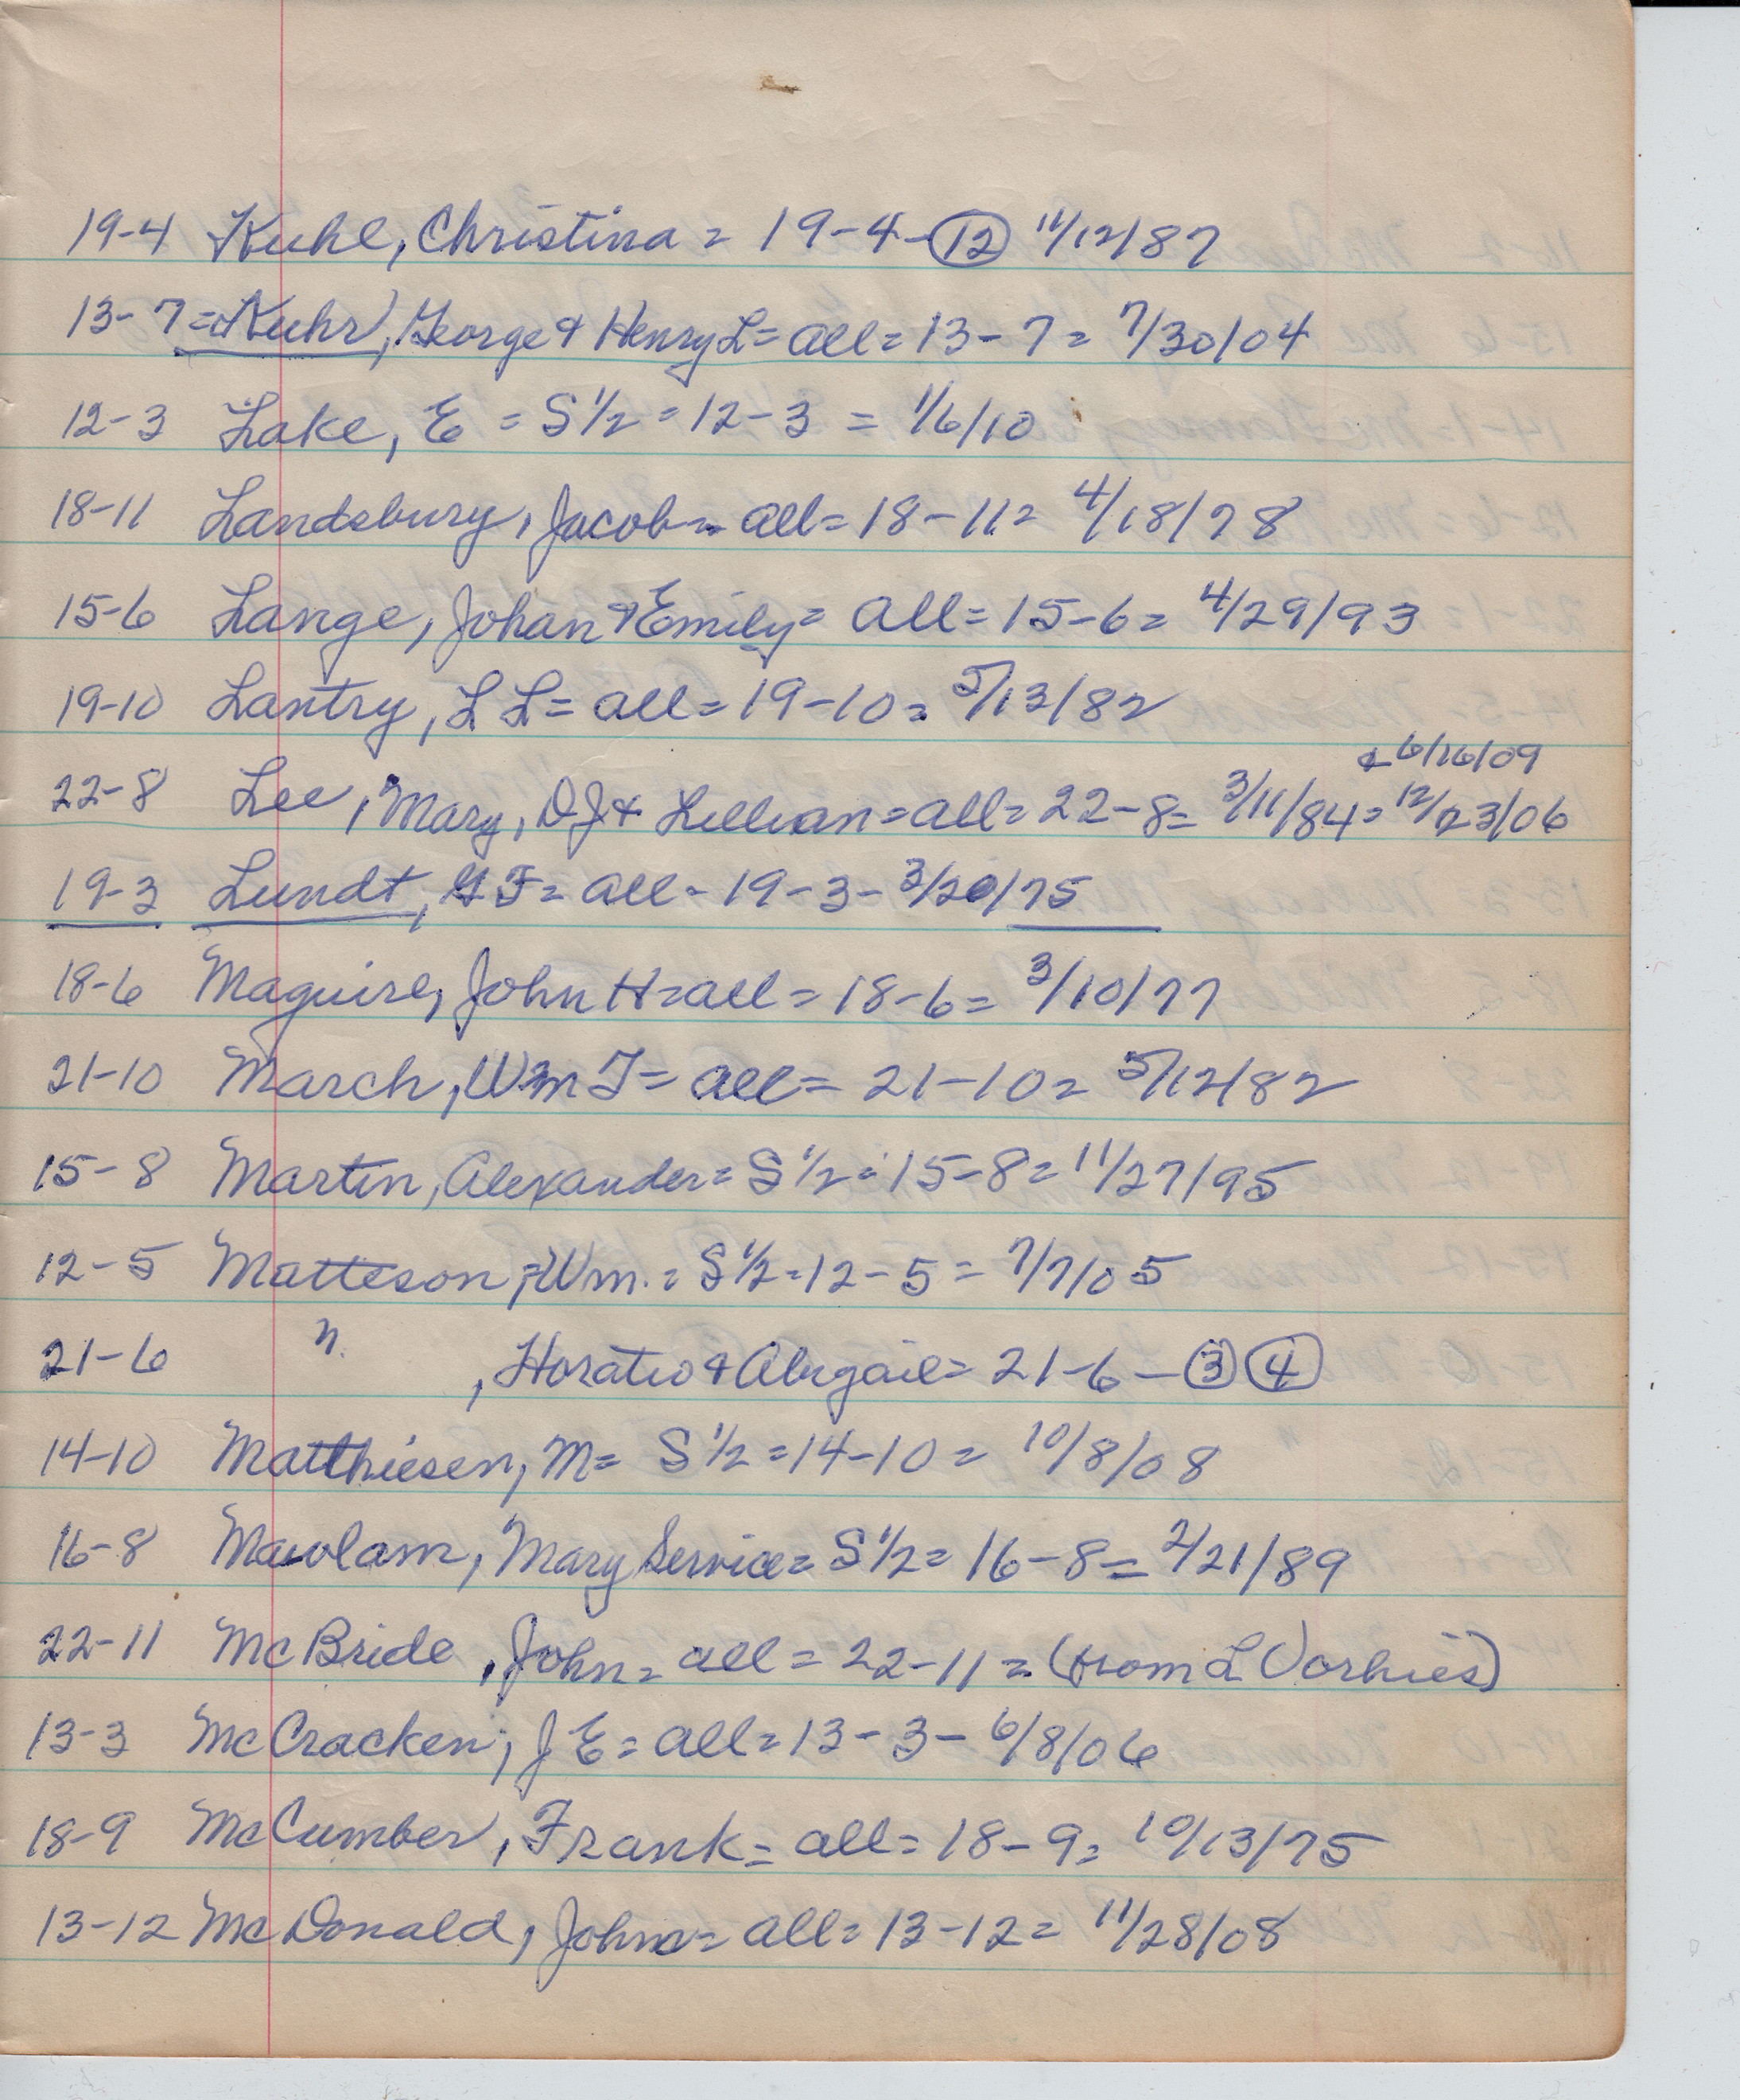 19-4 Kuhl, Christina = 19-4-12 11/12/87
13-7 = Kuhr, George & Henry L = all = 13-7 = 7/30/04
12-3 Lake, E = S 1/2 = 12-3 = 1/6/10
18-11 Landsbury, Jacob = all = 18-11 = 4/18/78
15-6 Lange, Johan & Emily = all = 15-6 = 4/29/93
19-10 Lantry, L L = all = 19-10 = 5/13/82
& 6/26/09
22-8 Lee, Mary, D J & Lillian = all = 22-8 = 3/11/84 = 12/23/06
19-3 Lundt, G F = all - 19-3 - 3/20/75
18-6 Maguire, John H = all = 18-6 = 3/10/77
21-10 March, Wm T = all = 21-10 = 5/12/82
15-8 Martin, Alexander = S 1/2 = 15-8 = 11/27/95
12-5 Matteson, Wm. = S 1/2 = 12-5 = 7/7/05
21-6 " , Horatio & Abigail = 21-6 - 3 4
14-10 Matthiesen, M = S 1/2 = 14-10 = 10/8/08
16-8 Mary Service = S 1/2 = 16-8 = 2/21/89
22-11 McBride, John = all = 22-11 = (from L Vorhies)
13-3 McCracken, J E = all = 13-3 - 6/8/06
18-9 McCumber, Frank = all = 18-9 = 10/13/75
13-12 McDonald, John = all = 13-12 = 11/28/08